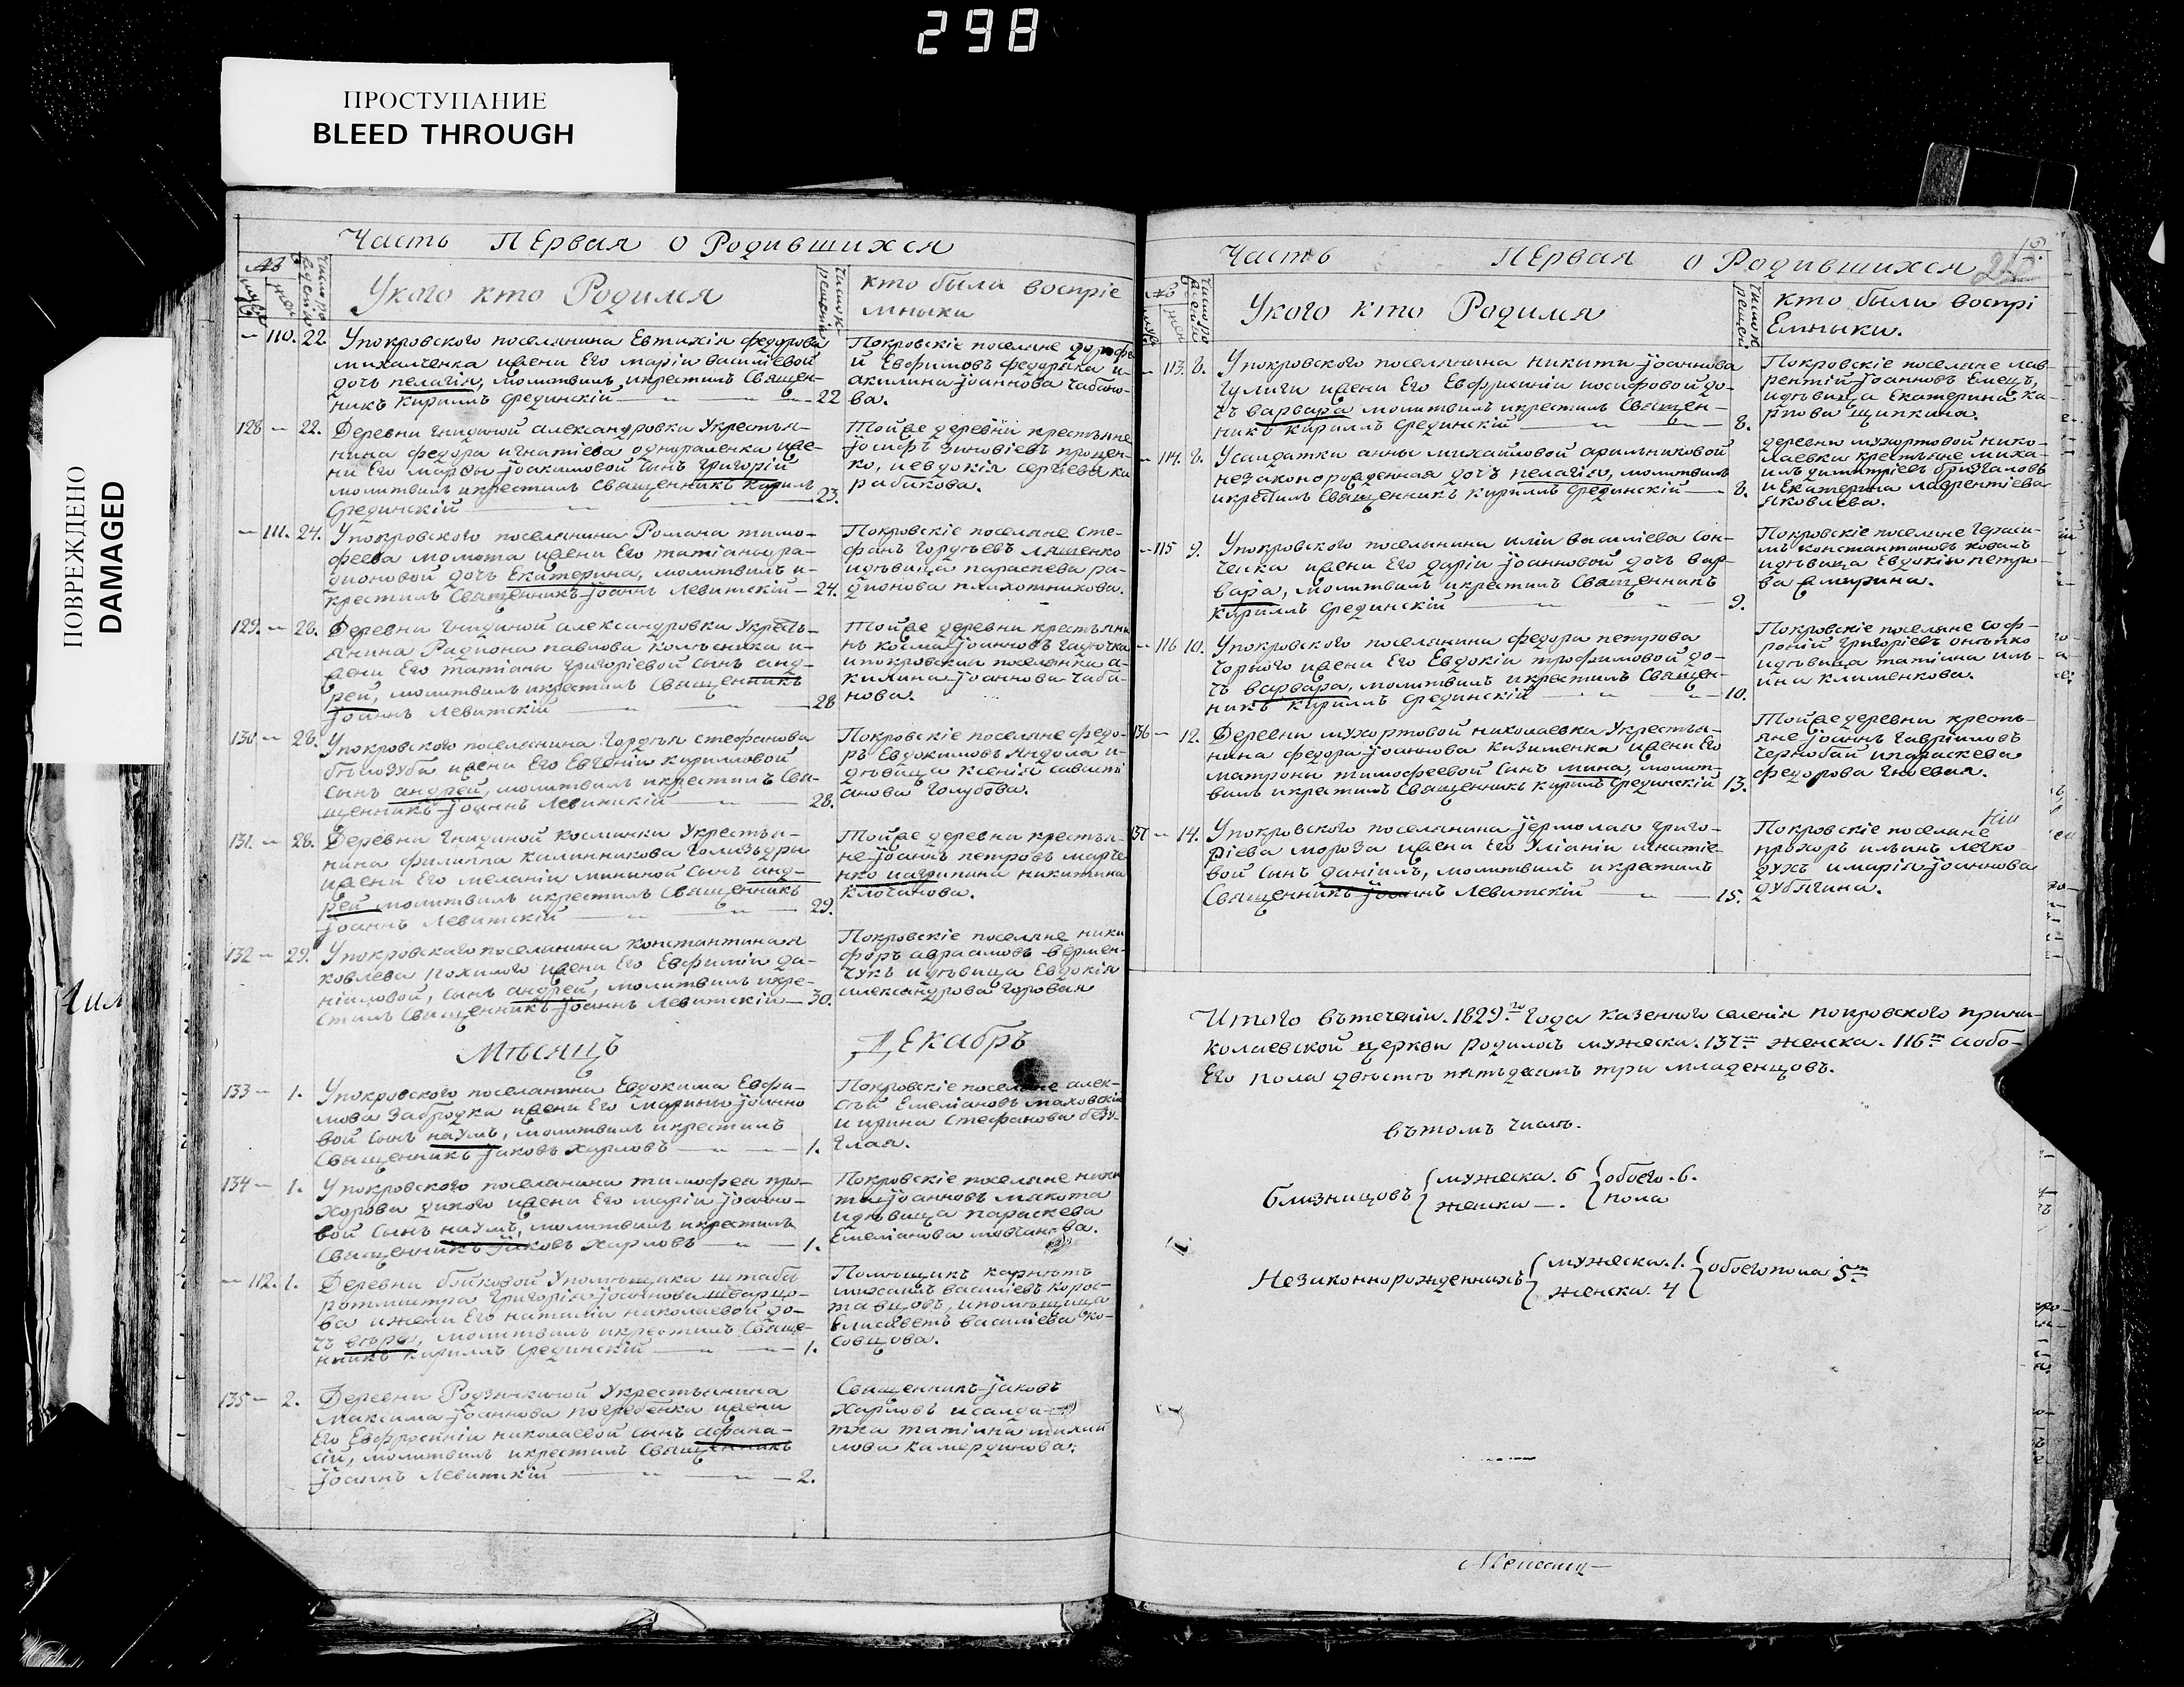 298
ПРОСТУПАНИЕ
BLEED THROUGH
ПОВРЕЖДЕНО
DAMAGED
Часть ПЕрвая о Родившихся
№
Укого кто Родился
кто были воспріе
мники
110. 22. Упокровского поселянина Евтихія федорова
михальченка ижени Его маріи василіевой
дочь пелагія, молитвилъ икрестилъ Священ-
никъ кириллъ Срединскій 22
Покровскіе поселяне дорофе
й Евфимовъ федоряка и-
акилина Іоаннова чабано-
ва.
128 22. Деревни гнидиной александровки Укрестья-
нина федора игнатіева однораленка иже-
ни Его марфы Іоакимовой Сынъ григорій
молитвилъ икрестилъ Священникъ кирилъ
Срединскій 23.
Тойже деревни крестьяне
Іосифъ зиновіевъ процен-
ко, иевдокія сергіева ка
рабакова.
111. 24. Упокровского поселянина Романа тимо-
феева момота ижени Его татіаны ра-
дионовой дочь Екатерина, молитвилъ и-
крестилъ Священникъ Іоаннъ Левитскій 24.
Покровскіе поселяне Сте-
фанъ Гордѣевъ ляшенко
идѣвица параскева ра-
дионова плахотникова.
129. 28. Деревни гнидиной александровки Укресть-
янина Радиона павлова колѣсника и-
жени Его татіаны григоріевой Сынъ анд-
рей, молитвилъ икрестилъ Священникъ
Іоаннъ Левитскій 28
Тойже деревни крестьяни
нъ косма Іоанновъ гадючка
ипокровская поселянка а-
килина Іоаннова чаба-
нова.
130 28. Упокровского поселянина Гордѣя стефанова
бѣлозуба ижени Его Евгеніи кирилловой
Сынъ андрей, молитвилъ икрестилъ Свя-
щенникъ Іоаннъ Левитскій 28.
Покровскіе поселяне федо-
ръ Евдокимовъ яндола и-
дѣвица ксенія савасті
анова голубова.
131. 28. Деревни гнидиной космынки Укрестья-
нина филиппа калинникова голизъдры
ижени Его меланіи мининой Сынъ анд-
рей молитвилъ икрестилъ Священникъ
Іоаннъ Левитскій 29.
Тойже деревни крестья-
не Іоаннъ петровъ марче
нко иагрипина никитина
клочанова.
132 29. Упокровскаго поселянина константина я
ковлева похилого ижени Его Евфиміи да-
ніиловой, Сынъ андрей, молитвилъ икре-
стилъ Священникъ Іоаннъ Левитскій 30.
Покровскіе поселяне ники
форъ авраамовъ вермен-
чукъ идѣвица Евдокія
александрова горовая
Мѣсяцъ Декабръ
133 1. Упокровского поселянина Евдокима Евфи-
мова забродки ижени Его марины Іоанно
вой Сынъ наумъ, молитвилъ икрестилъ
Священникъ Іаковъ харловъ 1.
Покровскіе поселяне алек-
сѣй Емеліановъ маховскій
и ирина Стефанова безу-
глая.
134 1. Упокровского поселянина тимофея про-
хорова дикого ижени Его маріи Іоанно-
вой Сынъ наумъ, молитвилъ икрестилъ
Священникъ Іаковъ харловъ 1.
Покровскіе поселяне ники
та Іоанновъ макота
идѣвица параскева
Емеліанова мовчанова.
112. 1. Деревни бойковой Упомѣщика штабъ
ротмистра григорія Іоаннова шварцо-
ва ижени Его наталіи николаевой до-
чъ вѣра, молитвилъ икрестилъ Свяще-
нникъ кириллъ Срединскій 1.
Помѣщикъ корнетъ
михаилъ василіевъ корос-
товцовъ, ипомѣщица
Елисаветъ василіева ко-
совцова.
135 2. Деревни Родзянкиной Укрестьянина
максима Іоаннова погребенка ижени
Его Евфросиніи николаевой сынъ афана-
сій, молитвилъ икрестилъ Священникъ
Іоаннъ Левитскій 2.
Священникъ Іаковъ
харловъ исалда-
тка татіана
камердинова.
Часть ПЕрвая о Родившихся
№
Укого кто Родился
кто были воспрі
Емники.
113. 8. Упокровского поселянина никити Іоаннова
гулиги ижени Его Евфросиніи иосифовой до-
чъ варвара молитвилъ икрестилъ Священ-
никъ кириллъ Срединскій 8.
Покровскіе поселяне лав-
рентій Іоанновъ Емецъ,
идѣвица Екатерина ка-
рпова щипкина.
114. 8. Усалдатки анны михайловой арильниковой
незаконорожденная дочъ пелагія, молитвилъ
икрестилъ Священникъ кириллъ Срединскій 8.
деревни мухортовой нико-
лаевки крестьяне миха-
илъ димитріевъ бризгаловъ
и Екатерина лаврентіева
яковлева.
115 9. Упокровского поселянина иліи василіева Сон-
ченка ижени Его даріи Іоанновой дочъ вар-
вара, молитвилъ икрестилъ Священникъ
кириллъ Срединскій 9.
Покровскіе поселяне Гераси-
мъ константиновъ коваль
идѣвица Евдокія петро-
ва
116 10. Упокровского поселянина федора петрова
чорного ижени Его Евдокіи трофимовой до-
чъ варвара, молитвилъ икрестилъ Священ-
никъ кириллъ Срединскій 10.
Покровскіе поселяне Соф-
роній григоріевъ онѣпко
идѣвица татіана иль-
ина клименкова.
136 12. Деревни мухортовой николаевки Укрестья-
нина федора Іоаннова кизименка ижени Его
матроны тимофеевой Сынъ мина, молит-
вилъ икрестилъ Священникъ кирилъ Срединскій 13.
Тойже деревни кресть-
яне Іоаннъ гавріиловъ
чернобай ипараскева
федорова гноевая.
137 14. Упокровского поселянина Іермолая григо-
ріева мороза ижени Его Уліаніи игнатіе-
вой Сынъ даніилъ, молитвилъ икрестилъ
Священникъ Іоаннъ Левитскій 15.
Покровскіе поселяне
прохоръ ильинъ легко
духъ имарія Іоаннова
дубягина.
Итого втеченіи 1829го Года казенного селенія покровского прини
колаевской церкви родилось мужеска. 137 женска. 116 аобо-
Его пола двѣсти пятьдесятъ три младенцовъ.
втомъ числѣ.
близнецовъ мужеска. 6 женска —. обоего пола 6.
Незаконнорожденнихъ мужеска. 1. женска. 4 обоего пола 5